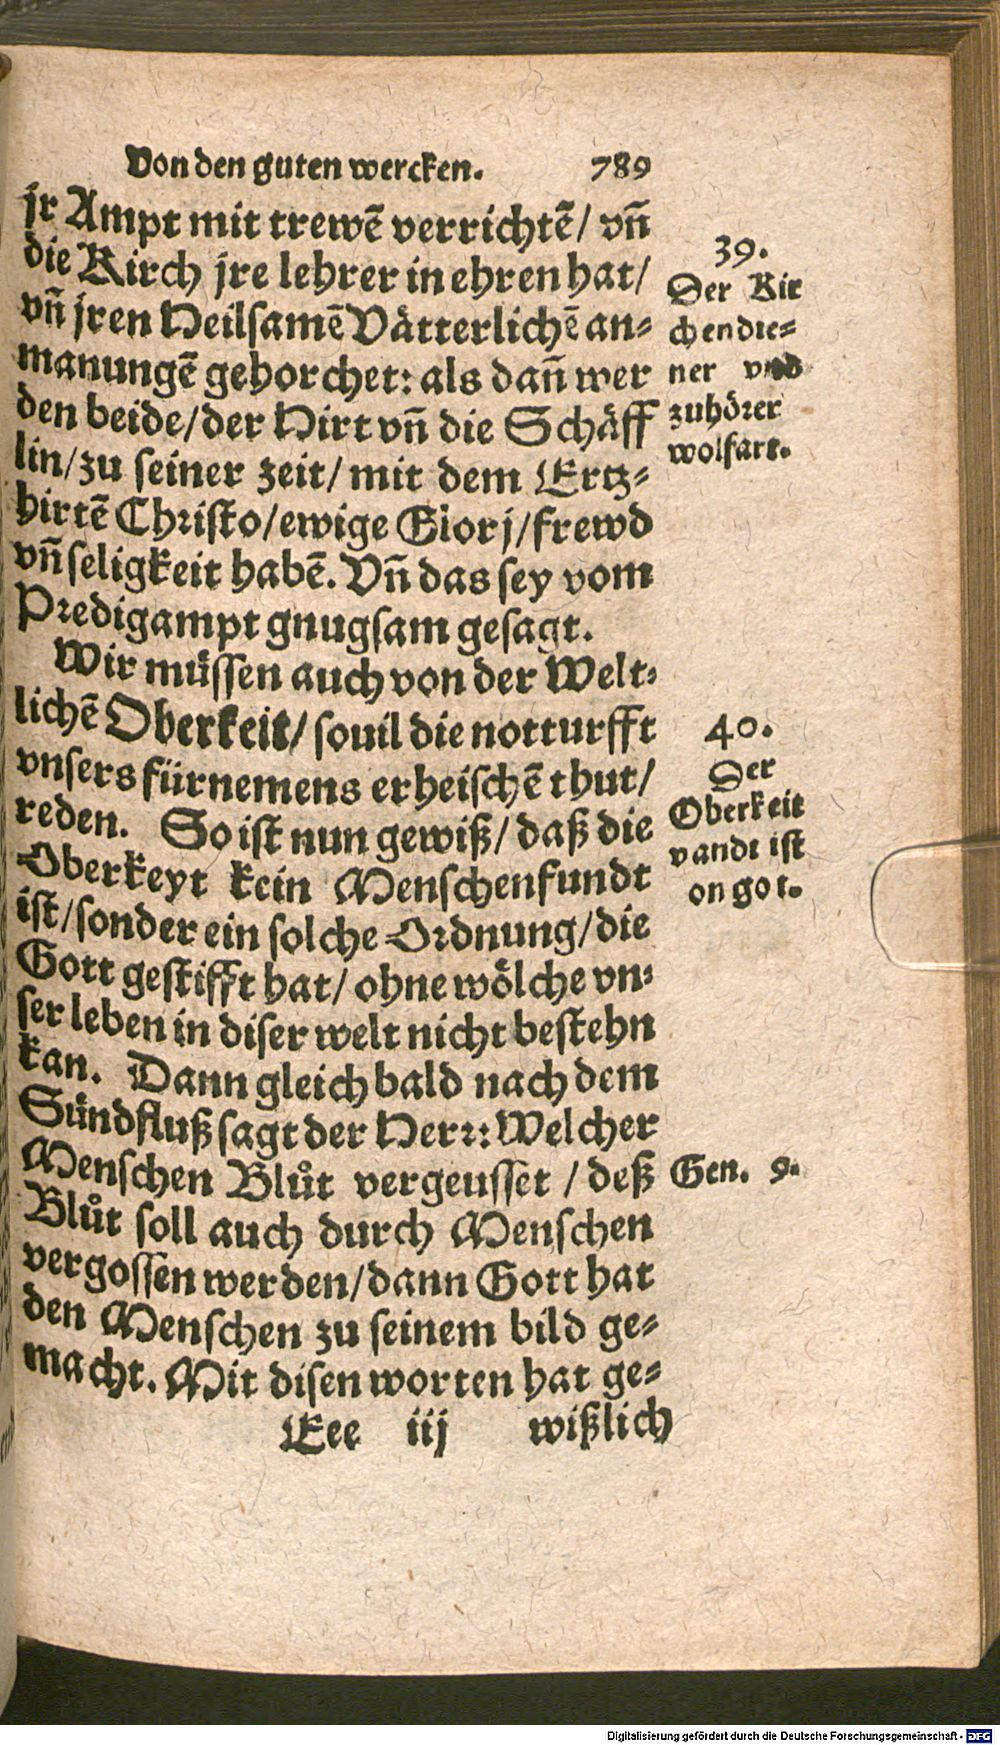 Von den guten wercken. 789
jr Ampt mit trewẽ verrichtẽ/ vñ
die Kirch jre lehrer in ehren hat/
vñ jren Heilsamẽ Vätterlichẽ an-
manungẽ gehorchet: als dañ wer
den beide/der Hirt vñ die Schäff
lin/zu seiner zeit/ mit dem Ertz-
hirtẽ Christo/ewige Glorj/frewd
vñ seligkeit habẽ. Vñ das sey vom
Predigampt gnugsam gesagt.
39.
Der Kir
chendie-
ner vnd
zuhörer
wolfart.
Wir müssen auch von der Welt-
lichẽ Oberkeit/ souil die notturfft
vnsers fürnemens erheischẽ thut/
reden. So ist nun gewiß/ daß die
Oberkeyt kein Menschenfundt
ist/sonder ein solche Ordnung/die
Gott gestifft hat/ ohne wölche vn-
ser leben in diser welt nicht bestehn
kan. Dann gleich bald nach dem
Sündfluß sagt der Herr: Welcher
Menschen Blůt vergeusset /deß
Blůt soll auch durch Menschen
vergossen werden/dann Gott hat
den Menschen zu seinem bild ge-
macht. Mit disen worten hat ge-
40.
Der
Oberkeit
vandt ist
on got.
Gen. 9.
Eee iij wißlich
Digitalisierung gefördert durch die Deutsche Forschungsgemeinschaft - DFG